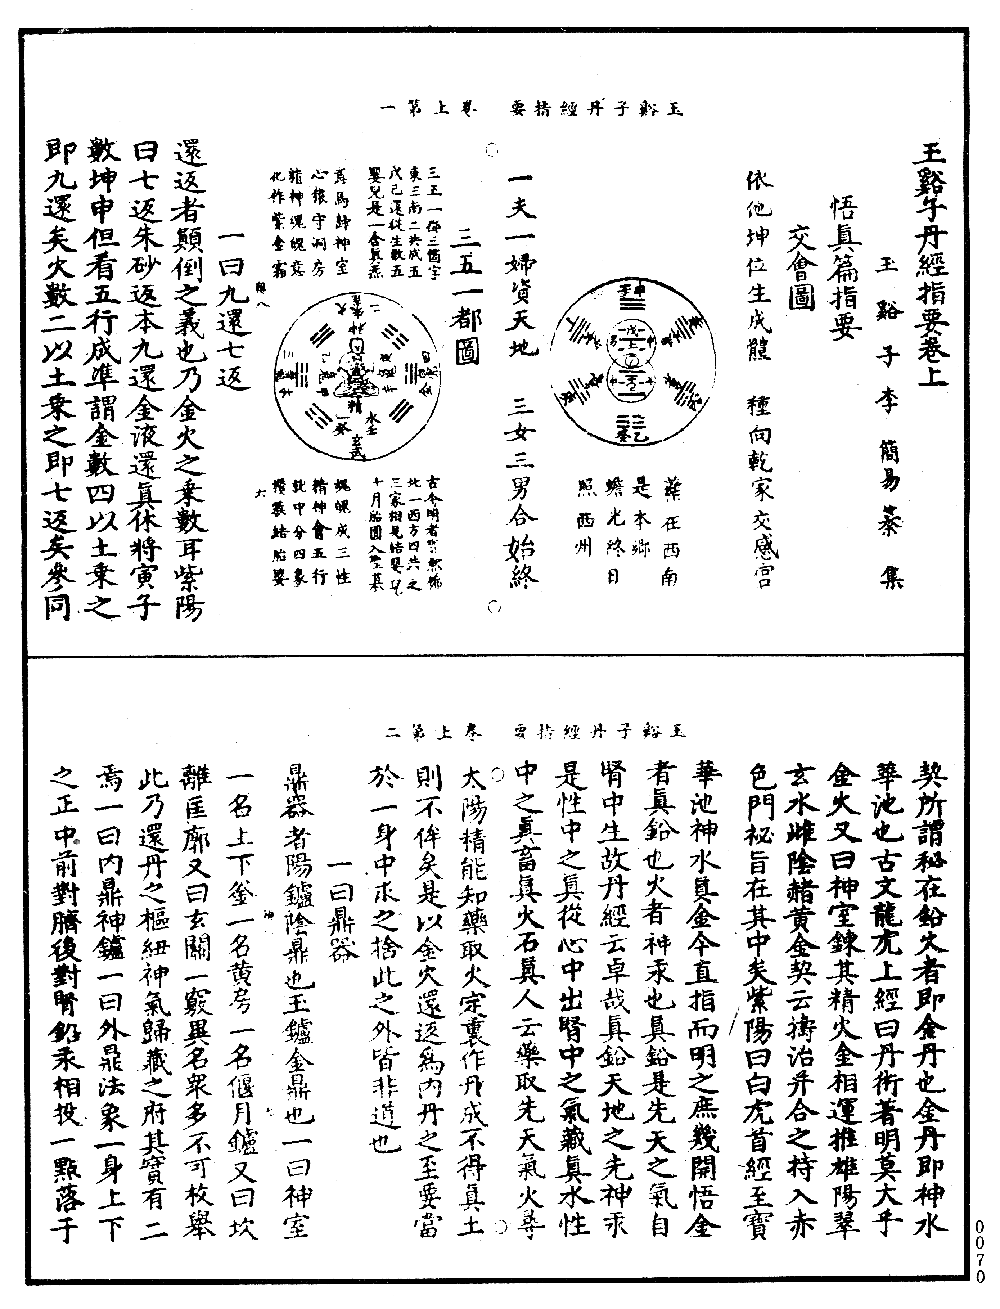 玉谿子丹經指要　卷上第一
玉谿子丹經指要卷上
玉谿子李簡易纂集
悟真篇指要
交會圖
依他坤位生成體　種向乾家交感宮
藥在西南
是本鄉
蟾光終日
照西州
一夫一婦資天地　三女三男合始終
三五一都圖
三五一都三箇字
東三南二共成五
戊己還從生數五
嬰兒是一含真炁
意馬歸神室
心猿守洞房
精神魂魄意
化作紫金霜
古今明者實然稀
北一西方四共之
三家相見結嬰兒
十月胎圓入聖基
魂魄成三性
精神會五行
就中分四象
攢簇結胎嬰
一曰九還七返
還返者顛倒之義也乃金火之乘數耳紫陽
曰七返朱砂返本九還金液還真休將寅子
數坤申但看五行成準謂金數四以土乘之
即九還矣火數二以土乘之即七返矣參同
玉谿子丹經指要　卷上第二
契所謂秘在鉛火者即金丹也金丹即神水
華池也古文龍虎上經曰丹術著明莫大乎
金火又曰神室鍊其精火金相運推雄陽翠
玄水雌陰赭黃金契云擣治并合之持入赤
色門祕旨在其中矣紫陽曰白虎首經至寶
華池神水真金今直指而明之庶幾開悟金
者真鉛也火者神汞也真鉛是先天之氣自
腎中生故丹經云卓哉真鉛天地之先神汞
是性中之真從心中出腎中之氣藏真水性
中之真畜真火石真人云藥取先天氣火尋
太陽精能知藥取火定裏作丹成不得真土
則不侔矣是以金火還返為內丹之至要當
於一身中求之捨此之外皆非道也
一曰鼎器
鼎器者陽鑪陰鼎也玉鑪金鼎也一曰神室
一名上下釜一名黃房一名偃月鑪又曰坎
離匡廓又曰玄關一竅異名衆多不可枚舉
此乃還丹之樞紐神氣歸藏之府其實有二
焉一曰內鼎神鑪一曰外鼎法象一身上下
之正中前對臍後對腎鉛汞相投一點落于
0070